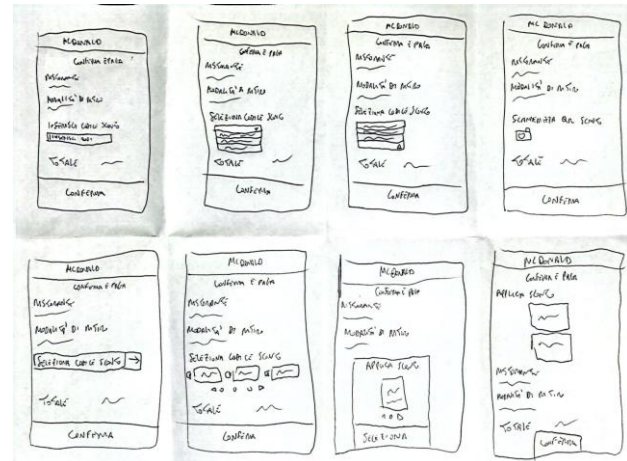 McDONALD
CONFERMA E PAGA
RISTORANTE
MODALITÀ DI RITIRO
INSERISCI CODICE SCONTO
TOTALE
CONFERMA
McDONALD
CONFERMA E PAGA
RISTORANTE
MODALITÀ RITIRO
SELEZIONA CODICE SCONTO
TOTALE
CONFERMA
McDONALD
CONFERMA E PAGA
RISTORANTE
MODALITÀ DI RITIRO
SELEZIONA CODICE SCONTO
TOTALE
CONFERMA
McDONALD
CONFERMA E PAGA
RISTORANTE
MODALITÀ DI RITIRO
SCANNERIZZA QR SCONTO
TOTALE
CONFERMA
McDONALD
CONFERMA E PAGA
RISTORANTE
MODALITÀ DI RITIRO
SELEZIONA CODICE SCONTO →
TOTALE
CONFERMA
McDONALD
CONFERMA E PAGA
RISTORANTE
MODALITÀ DI RITIRO
SELEZIONA CODICE SCONTO
TOTALE
CONFERMA
McDONALD
CONFERMA E PAGA
RISTORANTE
MODALITÀ DI RITIRO
APPLICA SCONTO
SELEZIONA
McDONALD
CONFERMA E PAGA
APPLICA SCONTO
RISTORANTE
MODALITÀ DI RITIRO
TOTALE
CONFERMA